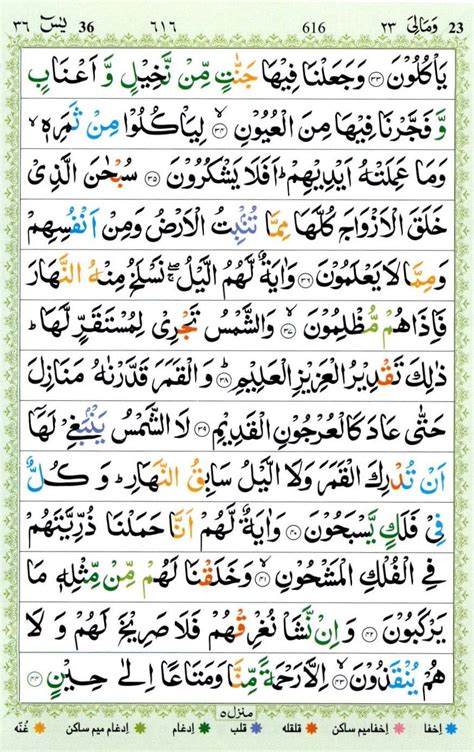 یٰسٓ ۳۶ 36 ۶۱۶ 616 وَمَالِیَ ۲۳ 23
یَاْكُلُوْنَ ۝۳۳ وَجَعَلْنَا فِیْهَا جَنّٰتٍ مِّنْ نَّخِیْلٍ وَّ اَعْنَابٍ
وَّ فَجَّرْنَا فِیْهَا مِنَ الْعُیُوْنِ ۝۳۴ لِیَاْكُلُوْا مِنْ ثَمَرِهٖ ۙ
وَمَا عَمِلَتْهُ اَیْدِیْهِمْ ؕ اَفَلَا یَشْكُرُوْنَ ۝۳۵ سُبْحٰنَ الَّذِیْ
خَلَقَ الْاَزْوَاجَ كُلَّهَا مِمَّا تُنْۢبِتُ الْاَرْضُ وَمِنْ اَنْفُسِهِمْ
وَمِمَّا لَا یَعْلَمُوْنَ ۝۳۶ وَاٰیَةٌ لَّهُمُ الَّیْلُ ۖۚ نَسْلَخُ مِنْهُ النَّهَارَ
فَاِذَاهُمْ مُّظْلِمُوْنَ ۝۳۷ وَالشَّمْسُ تَجْرِیْ لِمُسْتَقَرٍّ لَّهَا ؕ
ذٰلِكَ تَقْدِیْرُ الْعَزِیْزِ الْعَلِیْمِ ۝۳۸ وَالْقَمَرَ قَدَّرْنٰهُ مَنَازِلَ
حَتّٰی عَادَ كَالْعُرْجُوْنِ الْقَدِیْمِ ۝۳۹ لَا الشَّمْسُ یَنْۢبَغِیْ لَهَاۤ
اَنْ تُدْرِكَ الْقَمَرَ وَلَا الَّیْلُ سَابِقُ النَّهَارِ ؕ وَ كُلٌّ
فِیْ فَلَكٍ یَّسْبَحُوْنَ ۝۴۰ وَاٰیَةٌ لَّهُمْ اَنَّا حَمَلْنَا ذُرِّیَّتَهُمْ
فِی الْفُلْكِ الْمَشْحُوْنِ ۝۴۱ وَخَلَقْنَا لَهُمْ مِّنْ مِّثْلِهٖ مَا
یَرْكَبُوْنَ ۝۴۲ وَ اِنْ نَّشَاْ نُغْرِقْهُمْ فَلَا صَرِیْخَ لَهُمْ وَ لَا
هُمْ یُنْقَذُوْنَ ۝۴۳ اِلَّا رَحْمَةً مِّنَّا وَمَتَاعًا اِلٰی حِیْنٍ ۝۴۴
منزل ۵
اِخفا اِخفامیم ساکن قلقله قلب اِدغام اِدغام میم ساکن غُنّه